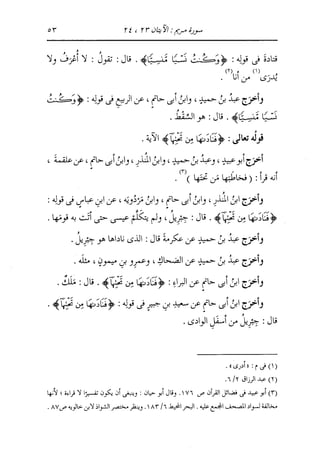 سورة مريم : الآيتان ٢٣ ، ٢٤ ٥٣
قتادة فى قوله : ﴿وَكُنتُ نَسْيًا مَّنسِيًّا﴾ . قال : تقول : لا أُعْرَفُ ولا
يُدرَى(١) من أنا(٢) .
وأخرَج عبدُ بنُ حميدٍ ، وابنُ أبى حاتمٍ ، عن الربيعِ فى قولِه : ﴿وَكُنتُ
نَسْيًا مَّنسِيًّا﴾ . قال : هو السِّقْطُ .
قولُه تعالى : ﴿فَنَادَىٰهَا مِن تَحْتِهَا﴾ الآية .
أخرَج أبو عبيدٍ ، وعبدُ بنُ حميدٍ ، وابنُ المنذرِ ، وابنُ أبى حاتمٍ ، عن علقمةَ ،
أنه قرأ : ( فخاطبَها مَن تحتَها )(٣) .
وأخرَج ابنُ المنذرِ ، وابنُ أبى حاتمٍ ، وابنُ مَرْدُويَه ، عن ابنِ عباسٍ فى قولِه :
﴿فَنَادَىٰهَا مِن تَحْتِهَا﴾ . قال : جِبْرِيلُ ، ولم يتكلَّمْ عيسى حتى أتت به قومَها .
وأخرَج عبدُ بنُ حميدٍ عن عكرمةَ قال : الذى ناداها هو جِبْرِيلُ .
وأخرَج عبدُ بنُ حميدٍ عن الضحاكِ ، وعمرِو بنِ ميمونٍ ، مثلَه .
وأخرَج ابنُ أبى حاتمٍ عن البراءِ : ﴿فَنَادَىٰهَا مِن تَحْتِهَا﴾ . قال : مَلَكٌ .
وأخرَج ابنُ أبى حاتمٍ عن سعيدِ بنِ جبيرٍ فى قولِه : ﴿فَنَادَىٰهَا مِن تَحْتِهَا﴾ .
قال : جِبْرِيلُ من أسفلِ الوادى .
(١) فى م : «أدرى» .
(٢) عبد الرزاق ٢/ ٦.
(٣) أبو عبيد فى فضائل القرآن ص ١٧٦. وقال أبو حيان : وينبغى أن يكون تفسيرًا لا قراءة ؛ لأنها
مخالفة لسواد المصحف المجمع عليه . البحر المحيط ٦/ ١٨٣. وينظر مختصر الشواذ لابن خالويه ص ٨٧.